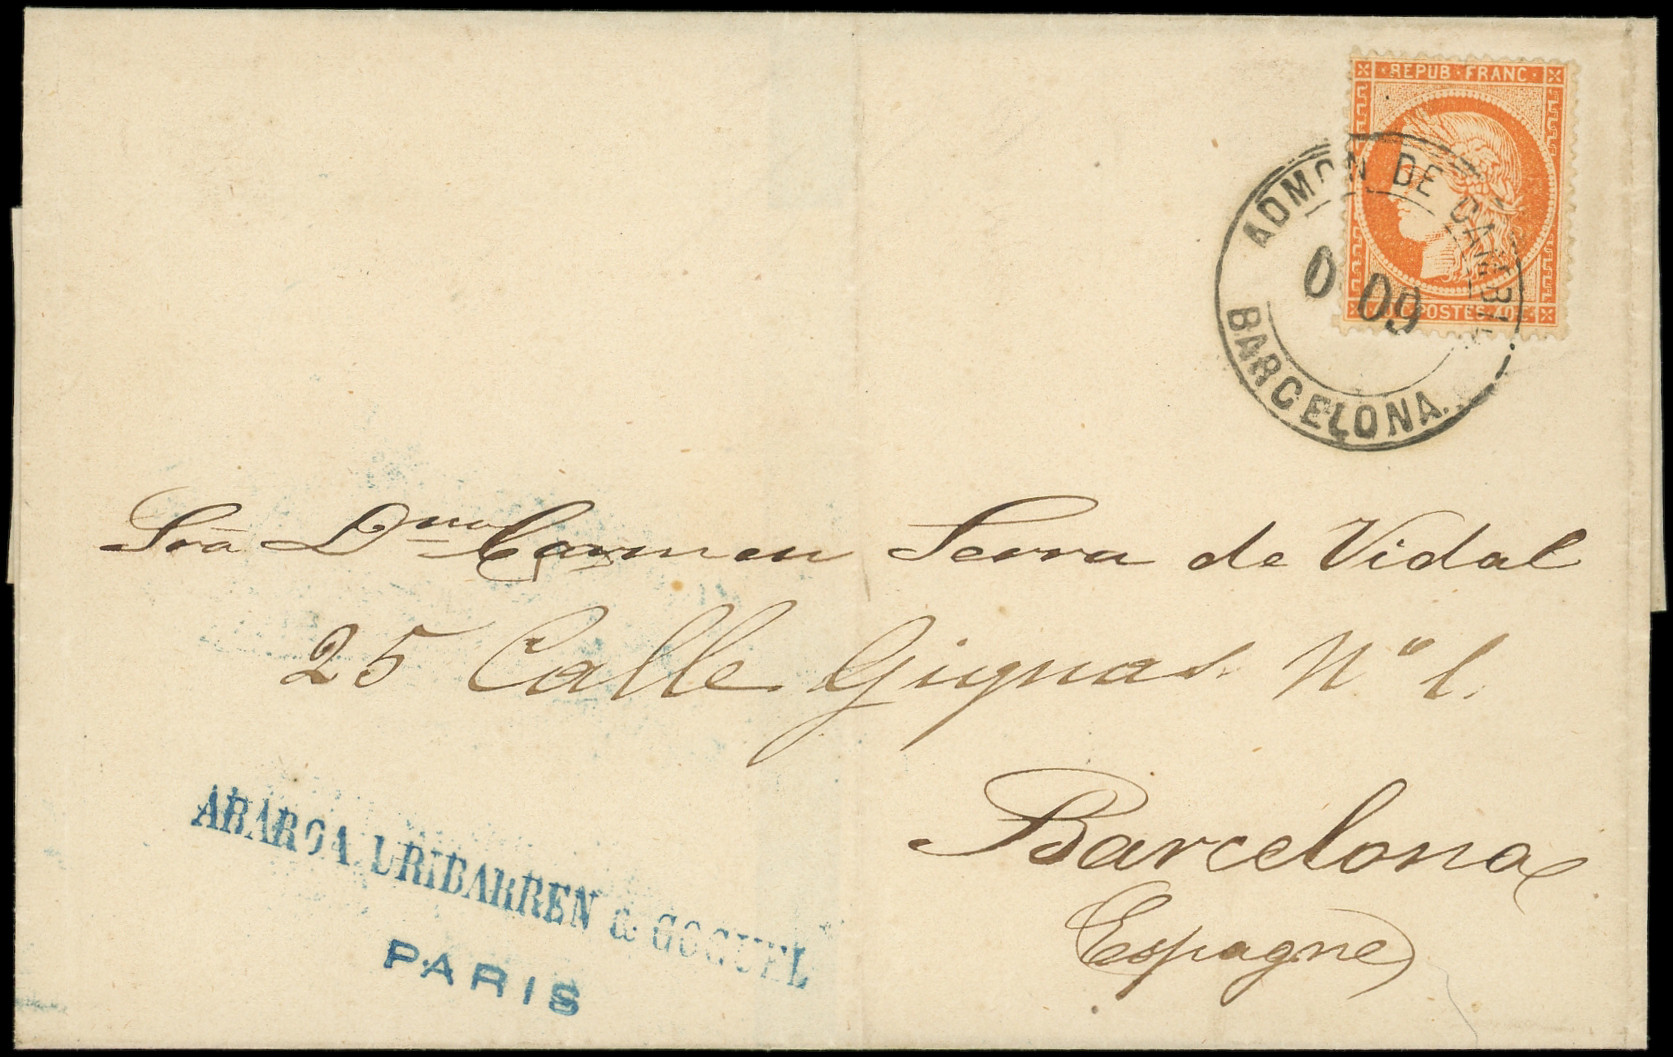 REPUB · FRANC ·
40 C · POSTES · 40 C
ADMON DE CAMBIO
0 09
BARCELONA.
Sra Dna Carmen Serra de Vidal
25 Calle Gignas Nº 1.
Barcelona
Espagne
ABAROA URIBARREN & GOGUEL
PARIS